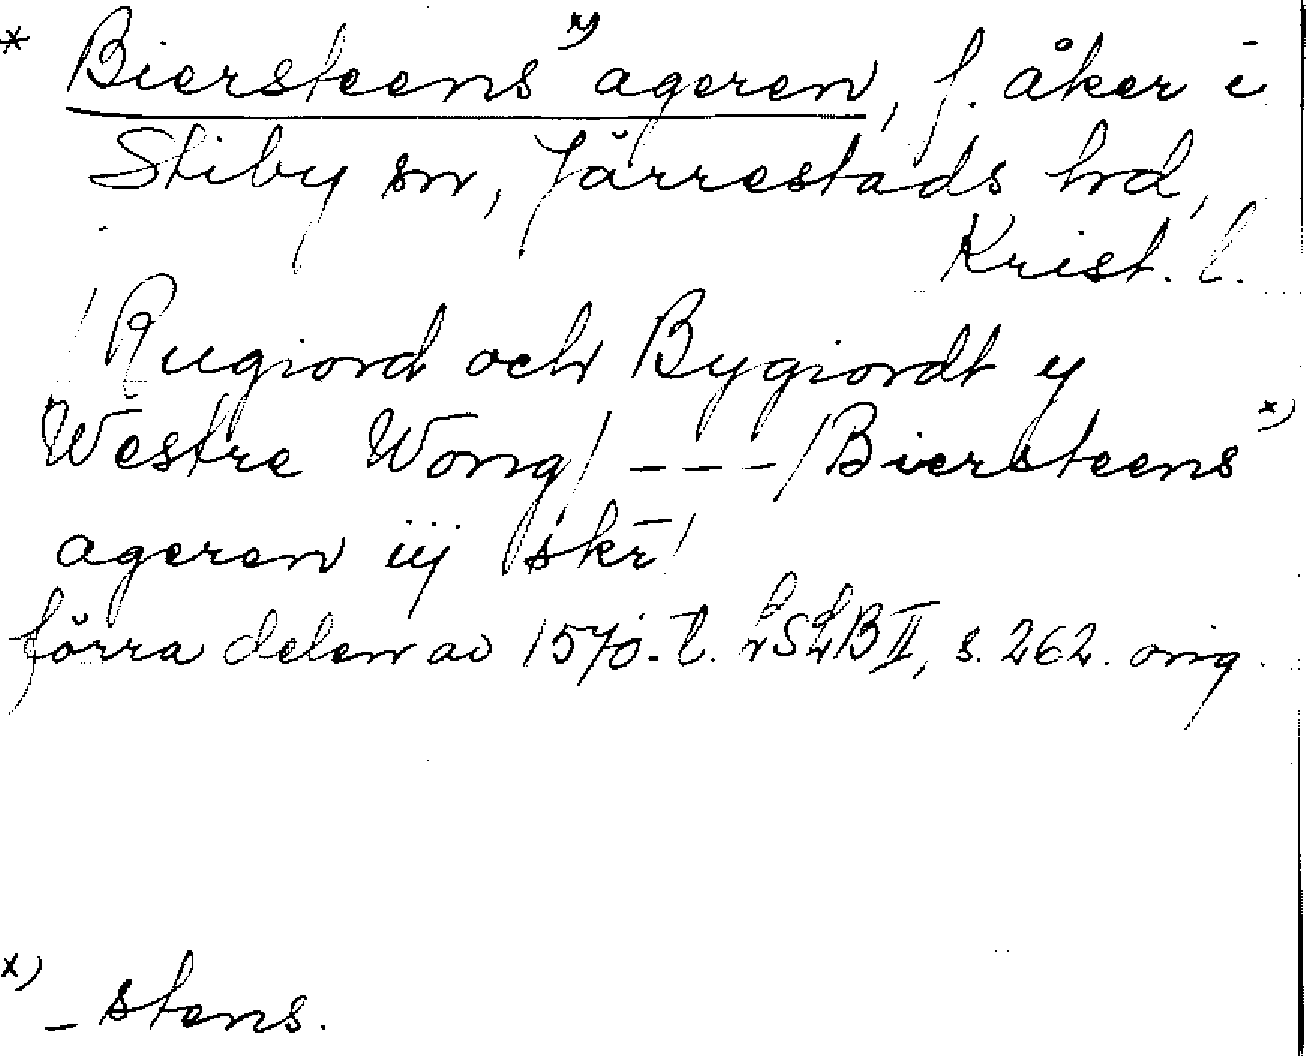 * Biersteens x) ageren, f. åker i
Stiby sn, Järrestads hd,
Krist. l.
/Rugiord och Bygiordt y
Westre Wong/ --- /Biersteens x)
ageren iij skr̄/
förra delen av 1570-t. LSLB II, s. 262. orig.
x) -stens.